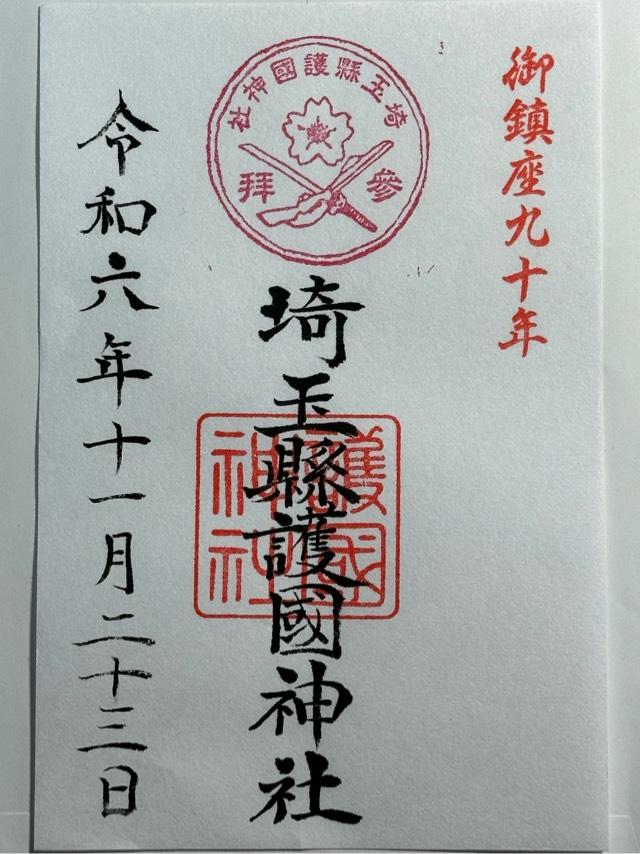 御鎮座九十年
埼玉縣護國神社
參拝
埼玉縣護國神社
護國
神社
令和六年十一月二十三日